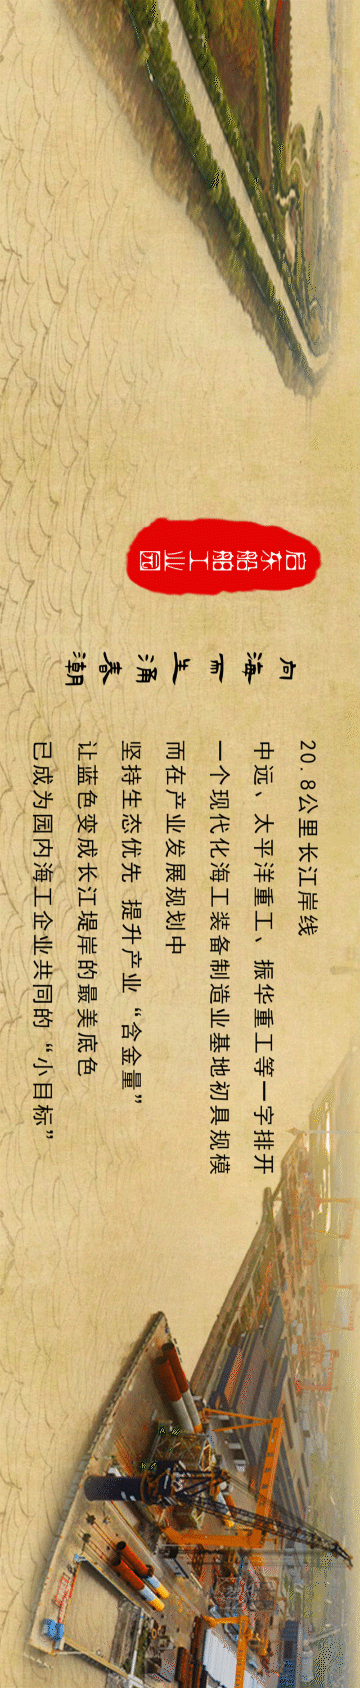 启东船舶工业园
向海而生涌春潮
20.8公里长江岸线
中远、太平洋重工、振华重工等一字排开
一个现代化海工装备制造业基地初具规模
而在产业发展规划中
坚持生态优先 提升产业“含金量”
让蓝色变成长江堤岸的最美底色
已成为园内海工企业共同的“小目标”